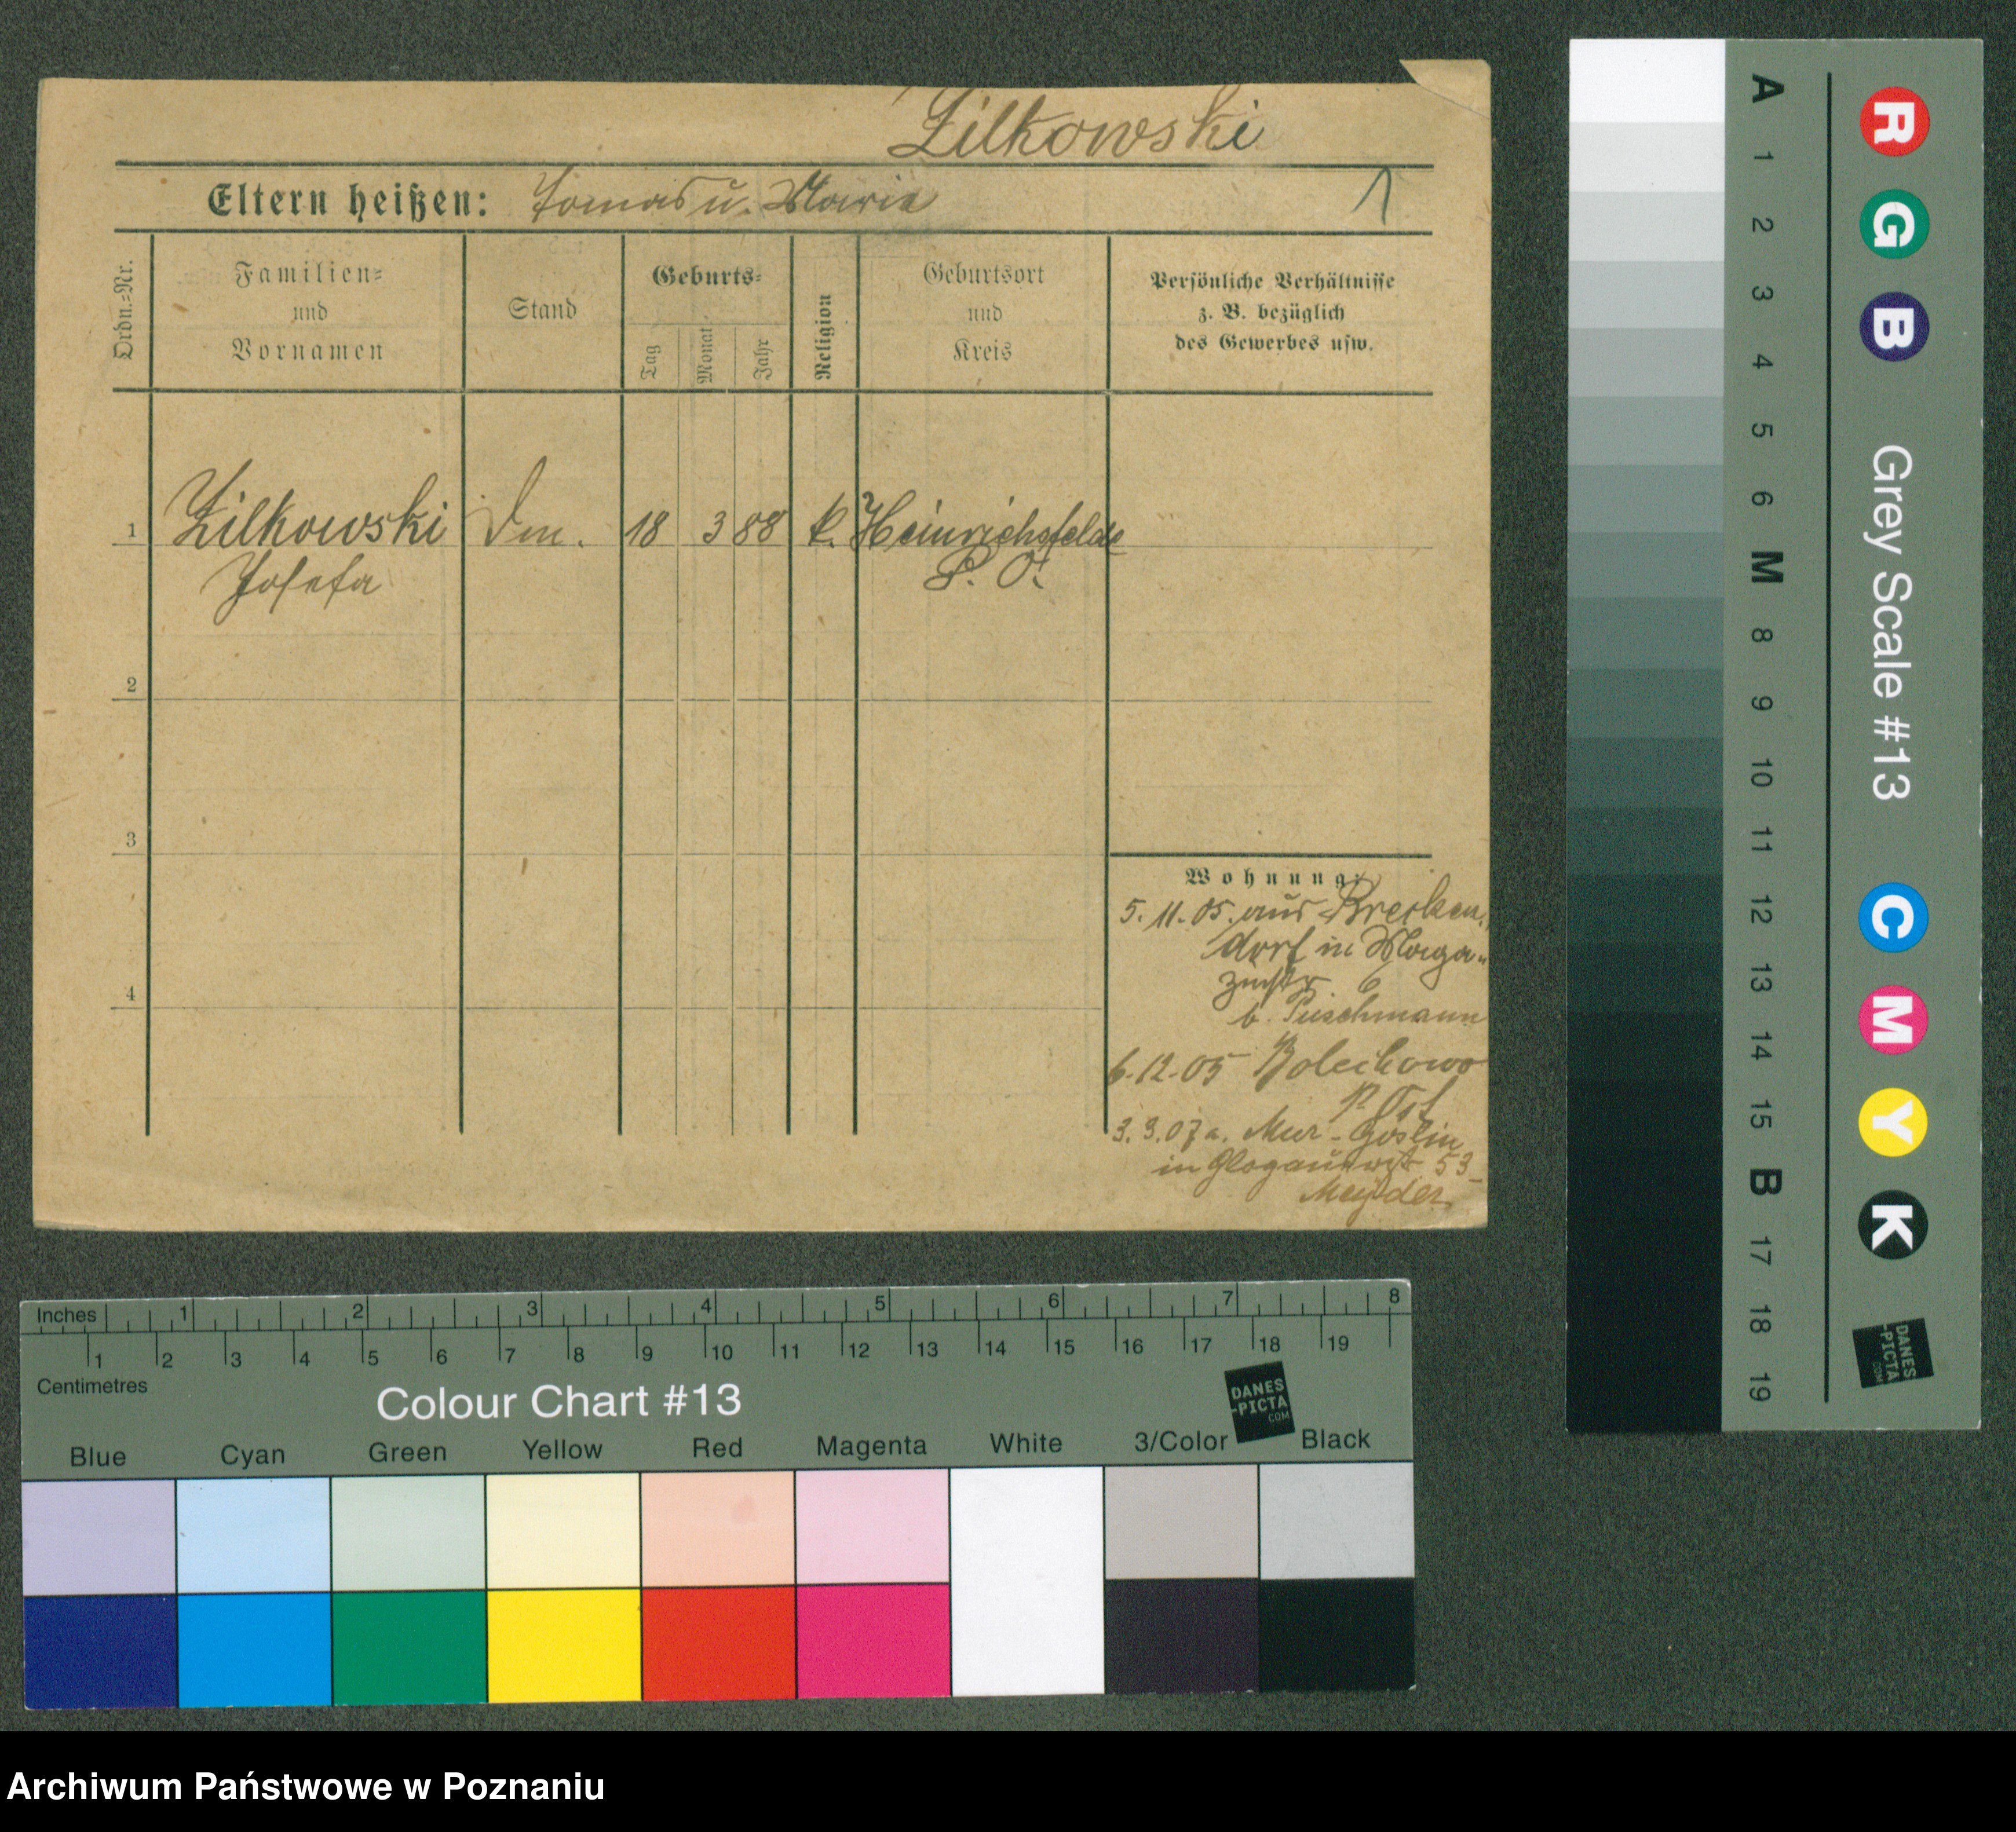 Zilkowski
Eltern heißen: Tomas u. Maria
1
Ordn.=Nr.
Familien=
und
Vornamen
Stand
Geburts=
Tag
Monat
Jahr
Religion
Geburtsort
und
Kreis
Persönliche Verhältnisse
z. B. bezüglich
des Gewerbes usw.
1
Zilkowski
Josefa
18
3
88
k.
Heinrichsfelde
P. O.
2
3
4
Wohnung:
5.11.05. aus
dorf in Maga=
zinstr 6
b. Püschmann
6.12.05 Bolechowo
P. Ost
3.3.07 a. Mur-Goslin
in Glogauerst 53
A 1 2 3 4 5 6 M 8 9 10 11 12 13 14 15 B 17 18 19
R G B Grey Scale #13 C M Y K
DANES
-PICTA
.COM
Inches 1 2 3 4 5 6 7 8
1 2 3 4 5 6 7 8 9 10 11 12 13 14 15 16 17 18 19
Centimetres
Colour Chart #13
DANES
-PICTA
.COM
Blue Cyan Green Yellow Red Magenta White 3/Color Black
Archiwum Państwowe w Poznaniu